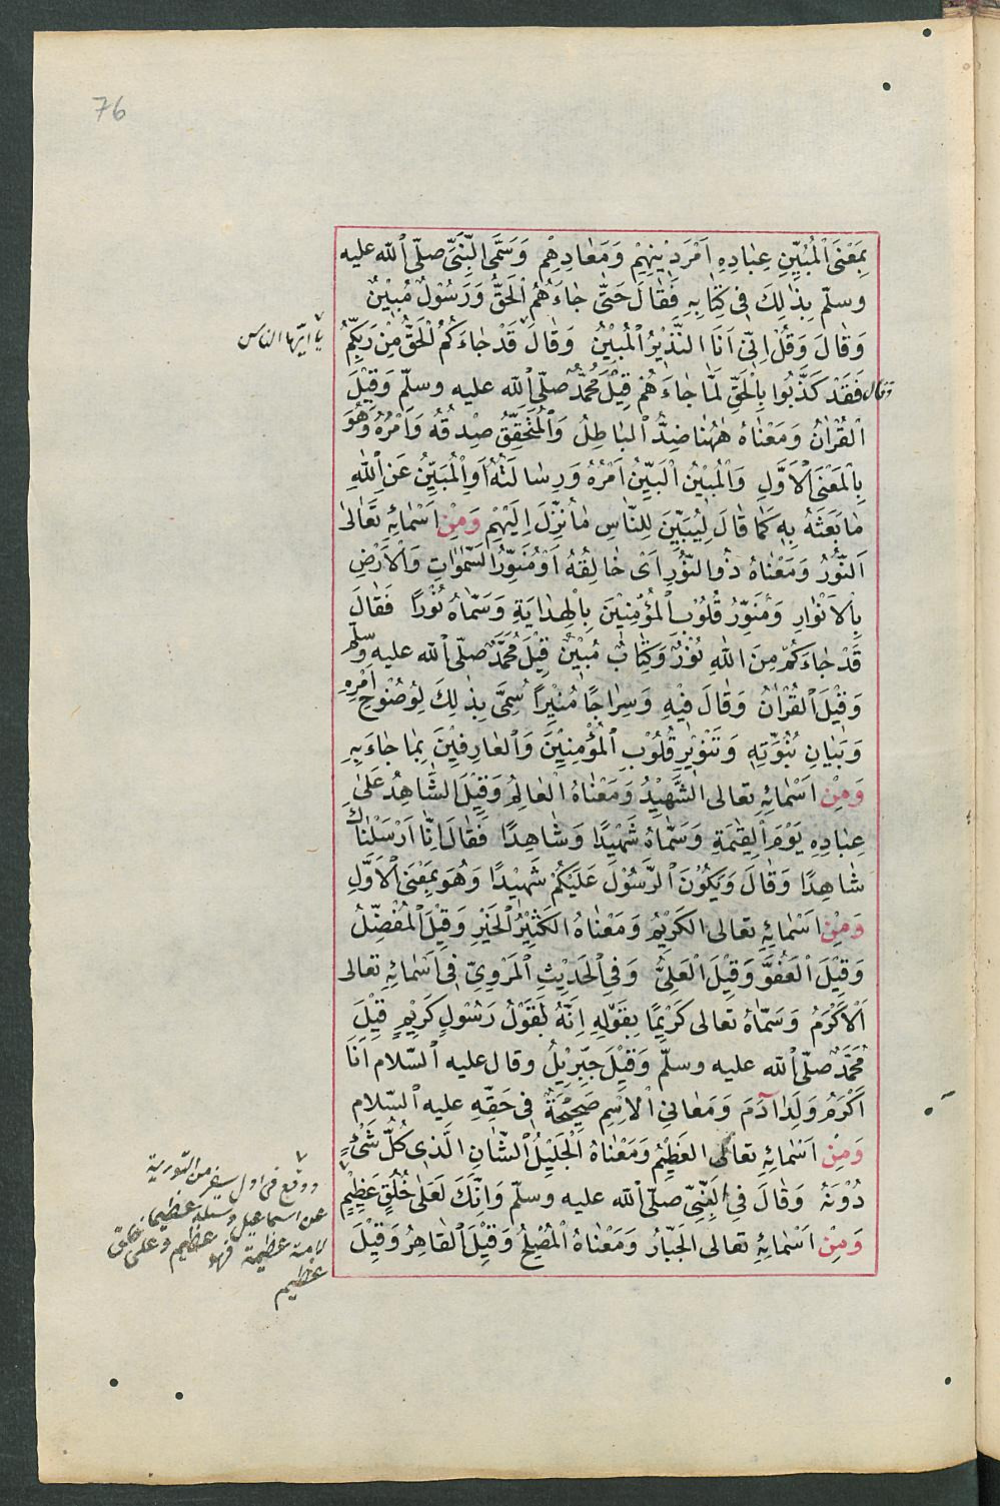 76
بِمَعْنَى الْمُبَيِّنِ عِبَادِهِ اَمْرَ دِيْنِهِمْ وَمَعَادِهِمْ وَسَمَّى النَّبِىَّ صلّى الله عليه
وسلّم بِذٰلِكَ فِى كِتَابِهِ فَقَالَ حَتّٰى جَاءَهُمُ الْحَقُّ وَرَسُولٌ مُبِيْنٌ
وَقَالَ وَقُلْ اِنّىِ اَنَا النَّذِيْرُ الْمُبِيْنُ وَقَالَ قَدْ جَاءَكُمُ الْحَقُّ مِنْ رَبِّكُمْ
يَا ايّها الناس
وقال فَقَدْ كَذَّبُوا بِالْحَقِّ لَمَّا جَاءَهُمْ قِيْلَ مُحَمَّدٌ صلّى الله عليه وسلّم وَقِيْلَ
الْقُرْاٰنُ وَمَعْنَاهُ هٰهُنَا ضِدُّ الْبَاطِلِ وَالْمُتَحَقِّقُ صِدْقُهُ وَاَمْرُهُ وَهُوَ
بِالْمَعْنَى الْاَوَّلِ وَالْمُبِيْنُ الْبَيِّنُ اَمْرُهُ وَرِسَالَتُهُ اَوِ الْمُبَيِّنُ عَنِ اللّٰهِ
مَا بَعَثَهُ بِهِ كَمَا قَالَ لِيُبَيِّنَ لِلنَّاسِ مَا نُزِّلَ اِلَيْهِمْ وَمِنْ اَسْمَائِهِ تَعَالٰى
اَلنُّوْرُ وَمَعْنَاهُ ذُو النُّوْرِ اَىْ خَالِقُهُ اَوْ مُنَوِّرُ السَّمٰوَاتِ وَالْاَرْضِ
بِالْاَنْوَارِ وَمُنَوِّرُ قُلُوْبِ الْمُؤْمِنِيْنَ بِالْهِدَايَةِ وَسَمَّاهُ نُوْرًا فَقَالَ
قَدْ جَاءَكُمْ مِنَ اللّٰهِ نُوْرٌ وَكِتَابٌ مُبِيْنٌ قِيْلَ مُحَمَّدٌ صلّى الله عليه وسلّم
وَقِيْلَ الْقُرْاٰنُ وَقَالَ فِيْهِ وَسِرَاجًا مُنِيْرًا سُمِّىَ بِذٰلِكَ لِوُضُوْحِ اَمْرِهِ
وَبَيَانِ نُبُوَّتِهِ وَتَنْوِيْرِ قُلُوْبِ الْمُؤْمِنِيْنَ وَالْعَارِفِيْنَ بِمَا جَاءَ بِهِ
وَمِنْ اَسْمَائِهِ تعالى الشَّهِيْدُ وَمَعْنَاهُ الْعَالِمُ وَقِيْلَ الشَّاهِدُ عَلٰى
عِبَادِهِ يَوْمَ الْقِيٰمَةِ وَسَمَّاهُ شَهِيْدًا وَشَاهِدًا فَقَالَ اِنَّا اَرْسَلْنَاكَ
شَاهِدًا وَقَالَ وَيَكُوْنَ الرَّسُوْلَ عَلَيْكُمْ شَهِيْدًا وَهُوَ بِمَعْنَى الْاَوَّلِ
وَمِنْ اَسْمَائِهِ تعالى الكَرِيْمُ وَمَعْنَاهُ الكَثِيْرُ الْخَيْرِ وَقِيْلَ الْمُفَضِّلُ
وَقِيْلَ الْعَفُوُّ وَقِيْلَ الْعَلِىُّ وَفِى الْحَدِيْثِ الْمَرْوِىِّ فِى اَسْمَائِهِ تعالى
اَلْاَكْرَمُ وَسَمَّاهُ تعالى كَرِيْمًا بِقَوْلِهِ اِنَّهُ لَقَوْلُ رَسُوْلٍ كَرِيْمٍ قِيْلَ
مُحَمَّدٌ صلّى الله عليه وسلّم وَقِيْلَ جِبْرِيْلُ وقال عليه السّلام اَنَا
اَكْرَمُ وَلَدِ اٰدَمَ وَمَعَانِى الْاِسْمِ صَحِيْحَةٌ فِى حَقِّهِ عليه السّلام
وَمِنْ اَسْمَائِهِ تعالى العَظِيْمُ وَمَعْنَاهُ الْجَلِيْلُ الشَّانِ الَّذِى كُلُّ شَىْءٍ
دُوْنَهُ وَقَالَ فِى النَّبِىِّ صلّى الله عليه وسلّم وَاِنَّكَ لَعَلٰى خُلُقٍ عَظِيْمٍ
وَمِنْ اَسْمَائِهِ تعالى الجَبَّارُ وَمَعْنَاهُ الْمُصْلِحُ وَقِيْلَ الْقَاهِرُ وَقِيْلَ
ووقع فى اول سفر من التّورية
عن اسماعيل وستلد عظيما
لامة عظيمة فهو عظيم وعلى خلق
عظيم